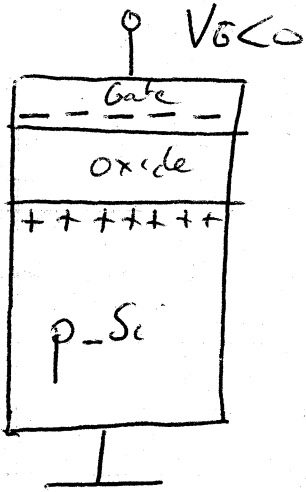 VG<0
Gate
- - - - -
oxide
+ + + + + + +
p-Si